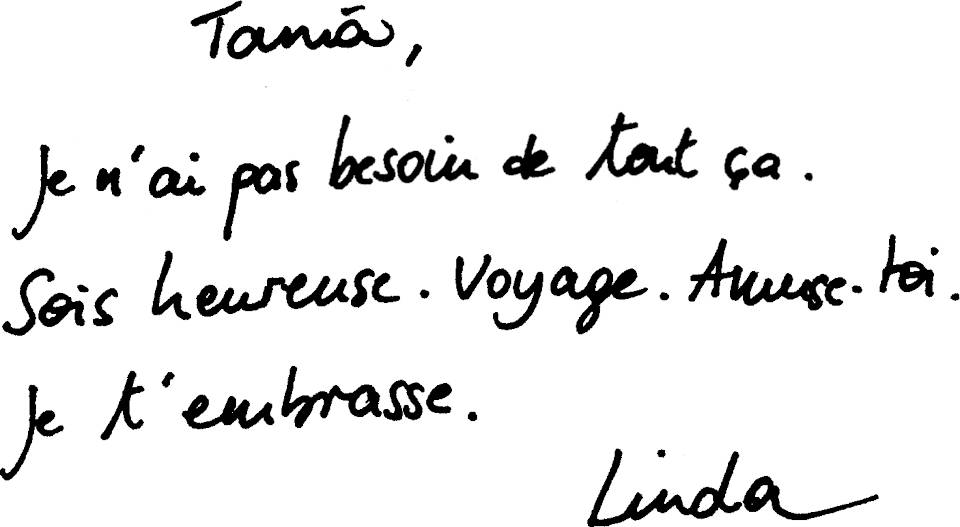 Tania,
Je n'ai pas besoin de tout ça.
Sois heureuse. Voyage. Amuse-toi.
Je t'embrasse.
Linda